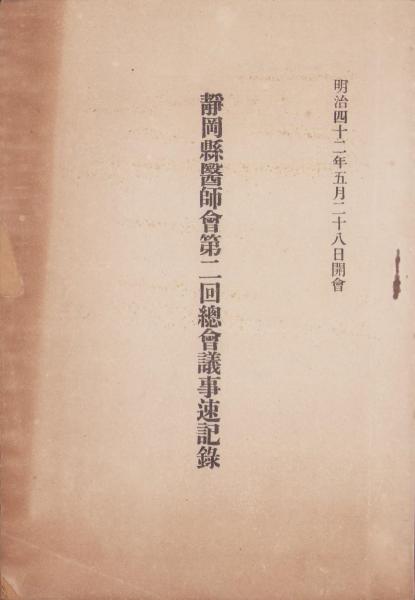 明治四十二年五月二十八日開會
靜岡縣醫師會第二回總會議事速記錄